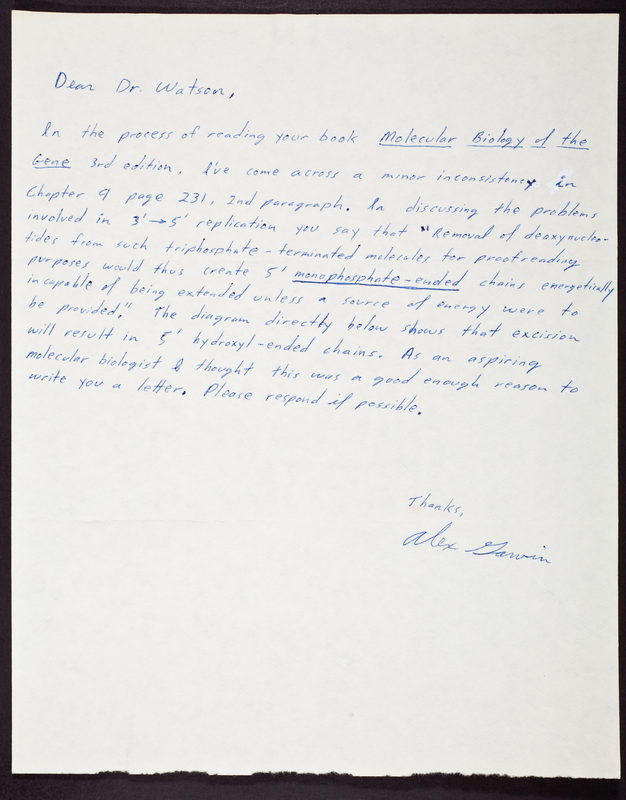 Dear Dr. Watson,
In the process of reading your book Molecular Biology of the
Gene 3rd edition, I've come across a minor inconsistency in
Chapter 9 page 231, 2nd paragraph. In discussing the problems
involved in 3'→5' replication you say that "Removal of deoxynucleo-
tides from such triphosphate-terminated molecules for proofreading
purposes would thus create 5' monophosphate-ended chains energetically
incapable of being extended unless a source of energy were to
be provided." The diagram directly below shows that excision
will result in 5' hydroxyl-ended chains. As an aspiring
molecular biologist I thought this was a good enough reason to
write you a letter. Please respond if possible.
Thanks,
Alex Garvin